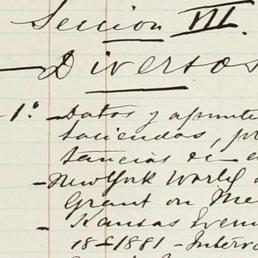 Seccion VII.
Diversos
1º Datos y apunte
haciendas, pr
tancias &-
New York World
Grant on Me
Kansas Even
18-1881 - Interv